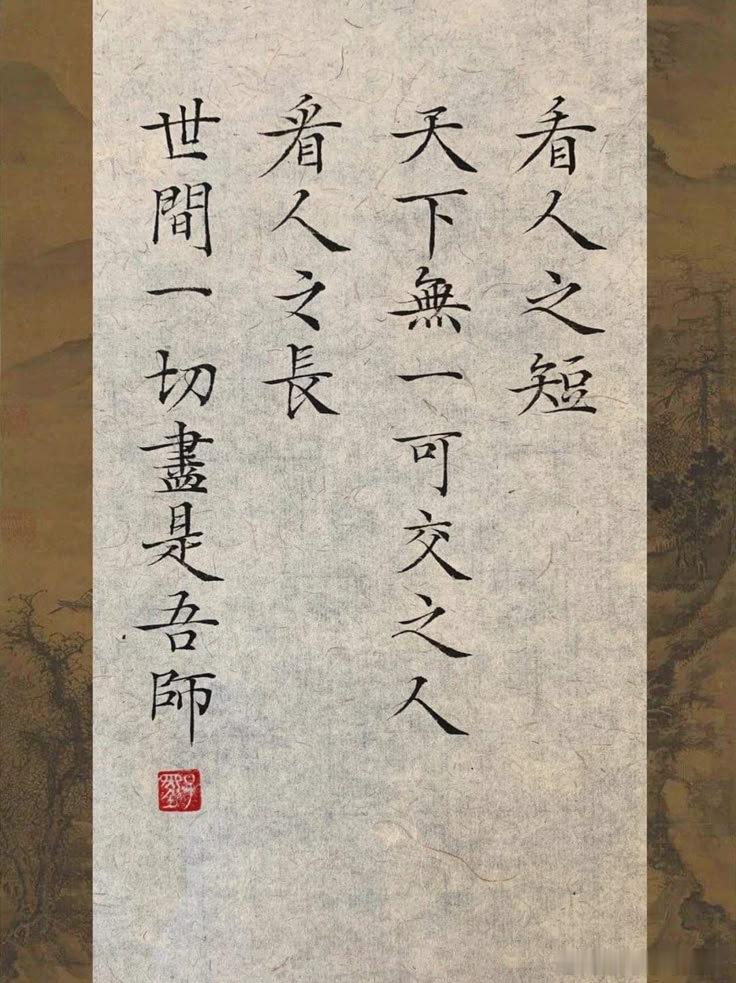 看人之短
天下無一可交之人
看人之長
世間一切盡是吾師